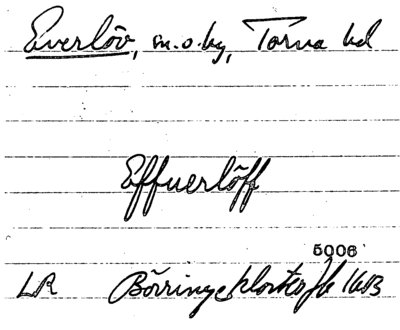 Everlöv, sn.o.by, Torna hd
Effuerlöff
5006
LR Börringeklosters Jb 1613